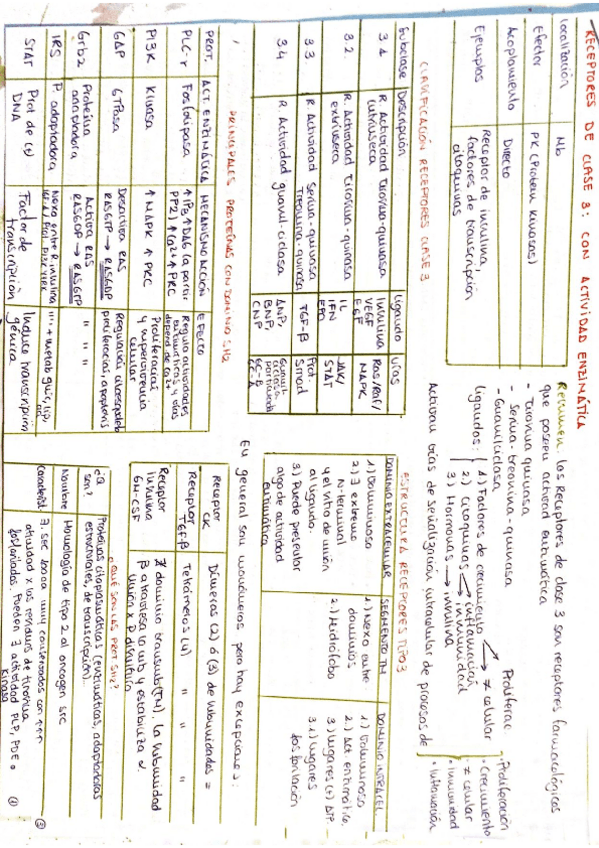 RECEPTORES DE CLASE 3: CON ACTIVIDAD ENZIMÁTICA
Localización Mb
Efector PK (Protein Kinasas)
Acoplamiento Directo
Ejemplos Receptor de insulina,
factores de transcripción
citoquinas
Resumen: Los Receptores de clase 3 son receptores farmacológicos
que poseen actividad enzimática
- Tirosina quinasa
- Serina-treonina-quinasa
- Guanilciclasa
Ligandos: 1) Factores de crecimiento Proliferac
≠ celular
2) Citoquinas inflamación
inmunidad
3) Hormonas → insulina
Activan vías de señalización intracelular de procesos de
· Proliferación
· Crecimiento
· ≠ celular
· Inmunidad
· Inflamación
CLASIFICACIÓN RECEPTORES CLASE 3
Subclase Descripción Ligando Vías
3.1 R. Actividad tirosina-quinasa
intrínseca
Insulina
VEGF
EGF
Ras/Raf/
MAPK
3.2. R. Actividad Tirosina-quinasa
extrínseca
IL
IFN
EPO
JAK/
STAT
3.3 R. Actividad Serina-quinasa
Treonina-quinasa
TGF-β
Prot.
Smad
3.4 R. Actividad guanil-ciclasa
ANP,
BNP,
CNP
Guanil
ciclasa
particulada
GC-B
GC-A
ESTRUCTURA RECEPTORES TIPO 3
DOMINIO EXTRACELULAR SEGMENTO TM DOMINIO INTRACEL
1) Voluminoso
2) ∃ extremo
N-terminal
y el sitio de unión
al ligando.
3) Puede presentar
algo de actividad
enzimática
1.) Nexo entre
dominios
2.) Hidrófobo
1) Voluminoso
2.) Act. enzimática
3) lugares (+) ATP
3.1) lugares
fosforilación
En general son monómeros pero hay excepciones:
Receptor
CK
Dímeros (2) ó (3) de subunidades =
Receptor
TGF-β
Tetrámeros (4) " "
Receptor
insulina
GM-CSF
≠ dominio transmb (TM). La subunidad
β atraviesa la mb y estabiliza α.
Unión x P. disulfuro
PRINCIPALES PROTEÍNAS CON DOMINIO SH2
PROT. ACT. ENZIMÁTICA MECANISMO ACCIÓN EFECTO
PLC-γ Fosfolipasa
↑ IP3 ↑ DAG (a partir
PPZ) ↑ Ca²⁺ ↑ PKC
Regula actividades
enzimáticas y vías
depend de Ca²⁺
PI3K Kinasa ↑ MAPK ↑ PKC
Proliferación
y supervivencia
celular
GAP GTPasa
Desactiva RAS
RASGTP → RASGDP
Regulación
proliferación, apoptosis
Grb2 Proteína
adaptadora
Activa RAS
RASGDP → RASGTP
" "
IRS P. adaptadora
Nexo entre R. insulina
STAT Prot de (+)
DNA
Factor de
transcripción
Induce transcripción
génica
¿QUÉ SON LAS PROT SH2?
¿Q
son?
Proteínas citoplasmáticas (enzimáticas, adaptadoras
estructurales, de transcripción)...
Nombre Homología de tipo 2 al oncogen src
Característ ∃. sec 100aa muy conservados con ↑↑↑
afinidad x los residuos de tirosina
fosforilados. Pueden ∃ actividad PLP, PDE o
kinasa